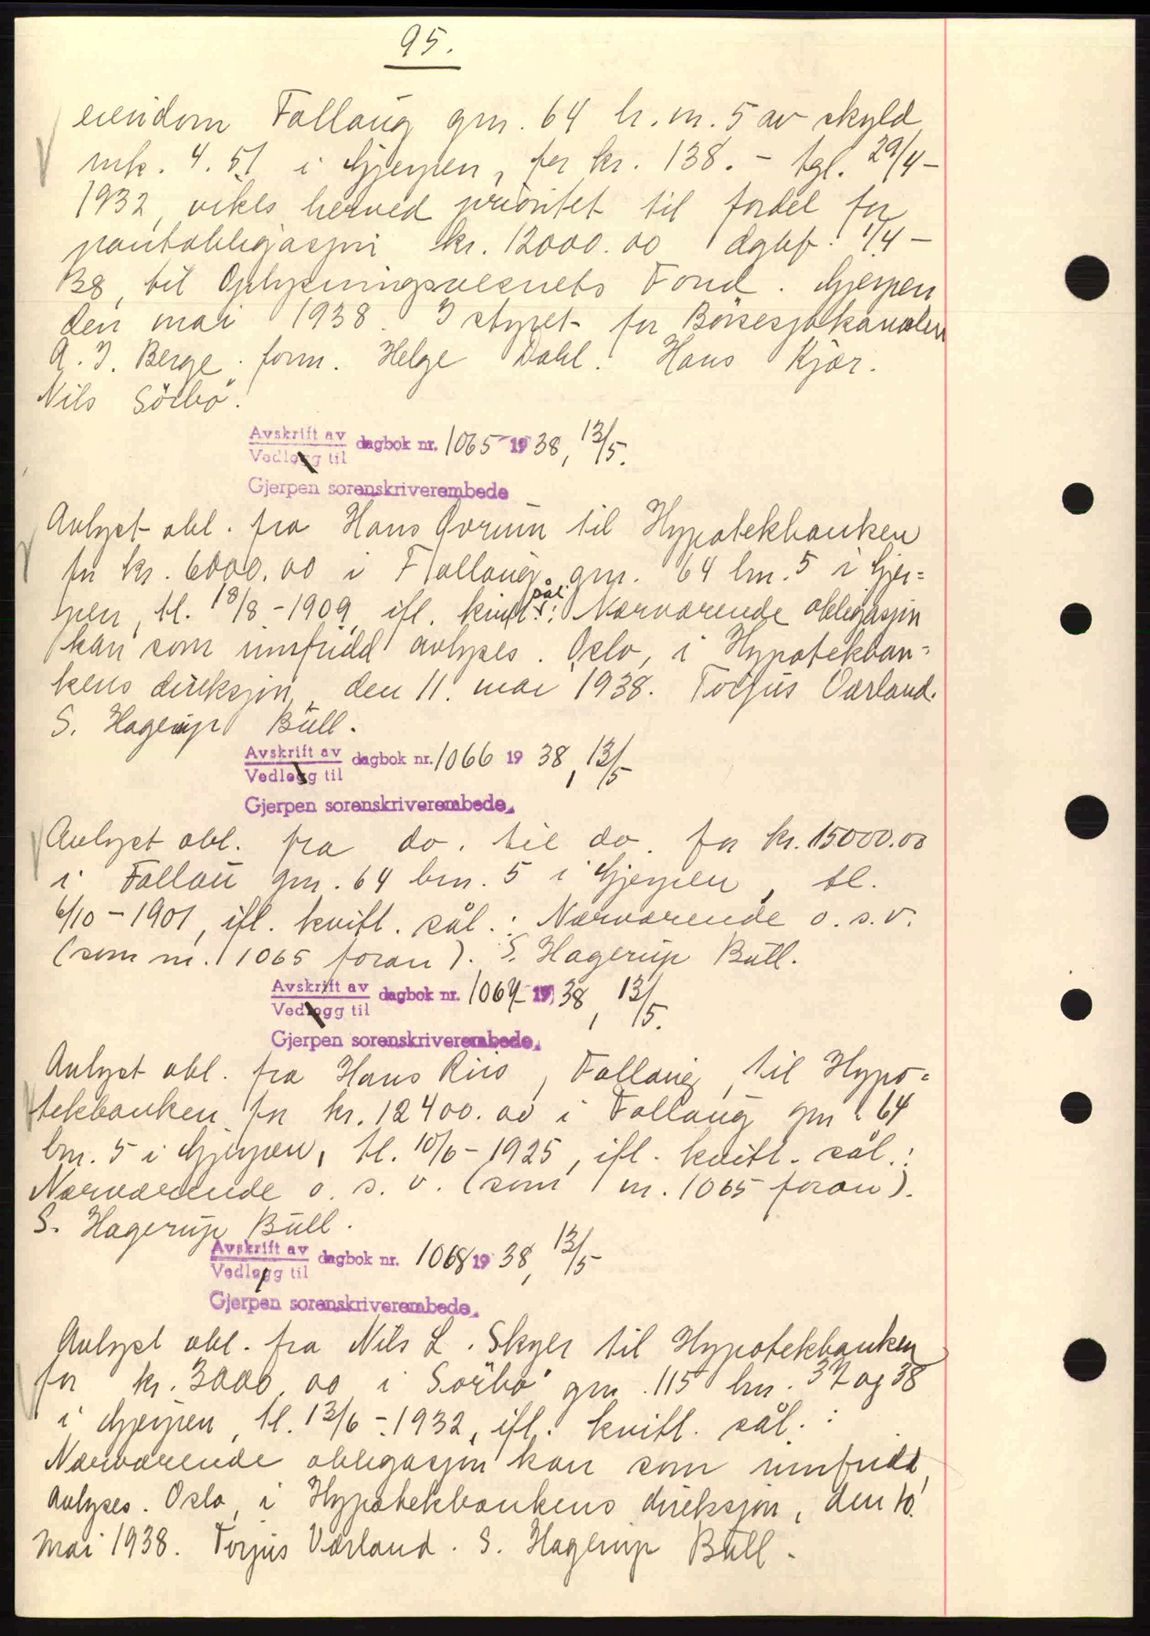 95.
eiendom Fallaug gnr. 64 br. nr. 5 av skyld
mrk. 4.51 i Gjerpen, for kr. 138.- tgl. 29/4-
1932, vikes herved prioritet til fordel for
pantobligasjon kr. 12000.00 dgbf. 1/4-
38, til Oplysningsvesnets Fond. Gjerpen
den mai 1938. I styret for Börsesjøkanalen
A. J. Berge form. Helge Dahl. Hans Kjær.
Nils Sörbö.
Avskrift av
Vedlegg til
dagbok nr. 1065 1938, 13/5.
Gjerpen sorenskriverembede
Avlyst obl. fra Hans Qvrum til Hypotekbanken
for kr. 6000.00 i Fallaug gnr. 64 bnr. 5 i Gjer=
pen, tl. 18/8-1909, ifl. kvitt. sål.: Nærværende obligasjon
kan som innfridd avlyses. Oslo, i Hypotekban=
kens direksjon, den 11. mai 1938. Torjus Værland.
S. Hagerup Bull.
Avskrift av
Vedlegg til
dagbok nr. 1066 1938, 13/5
Gjerpen sorenskriverembede.
Avlyst obl. fra do. til do. for kr. 15000.00
i Fallau gnr. 64 bnr. 5 i Gjerpen, tl.
6/10-1901, ifl. kvitt. sål.: Nærværende o.s.v.
(som nr. 1065 foran). S. Hagerup Bull.
Avskrift av
Vedlegg til
dagbok nr. 1067 1938, 13/5.
Gjerpen sorenskriverembede.
Avlyst obl. fra Hans Riis, Fallaug, til Hypo=
tekbanken for kr. 12400.00 i Fallaug gnr. 64
bnr. 5 i Gjerpen, tl. 10/6-1925, ifl. kvitt. sål.:
Nærværende o.s.v. (som nr. 1065 foran).
S. Hagerup Bull.
Avskrift av
Vedlegg til
dagbok nr. 1068 1938, 13/5
Gjerpen sorenskriverembede.
Avlyst obl. fra Nils L. Skyer til Hypotekbanken
for kr. 3000.00 i Sörbö gnr. 115 bnr. 37 og 38
i Gjerpen, tl. 13/6-1932, ifl. kvitt. sål.:
Nærværende obligasjon kan som innfridd
avlyses. Oslo, i Hypotekbankens direksjon, den 10.
mai 1938. Torjus Værland. S. Hagerup Bull.